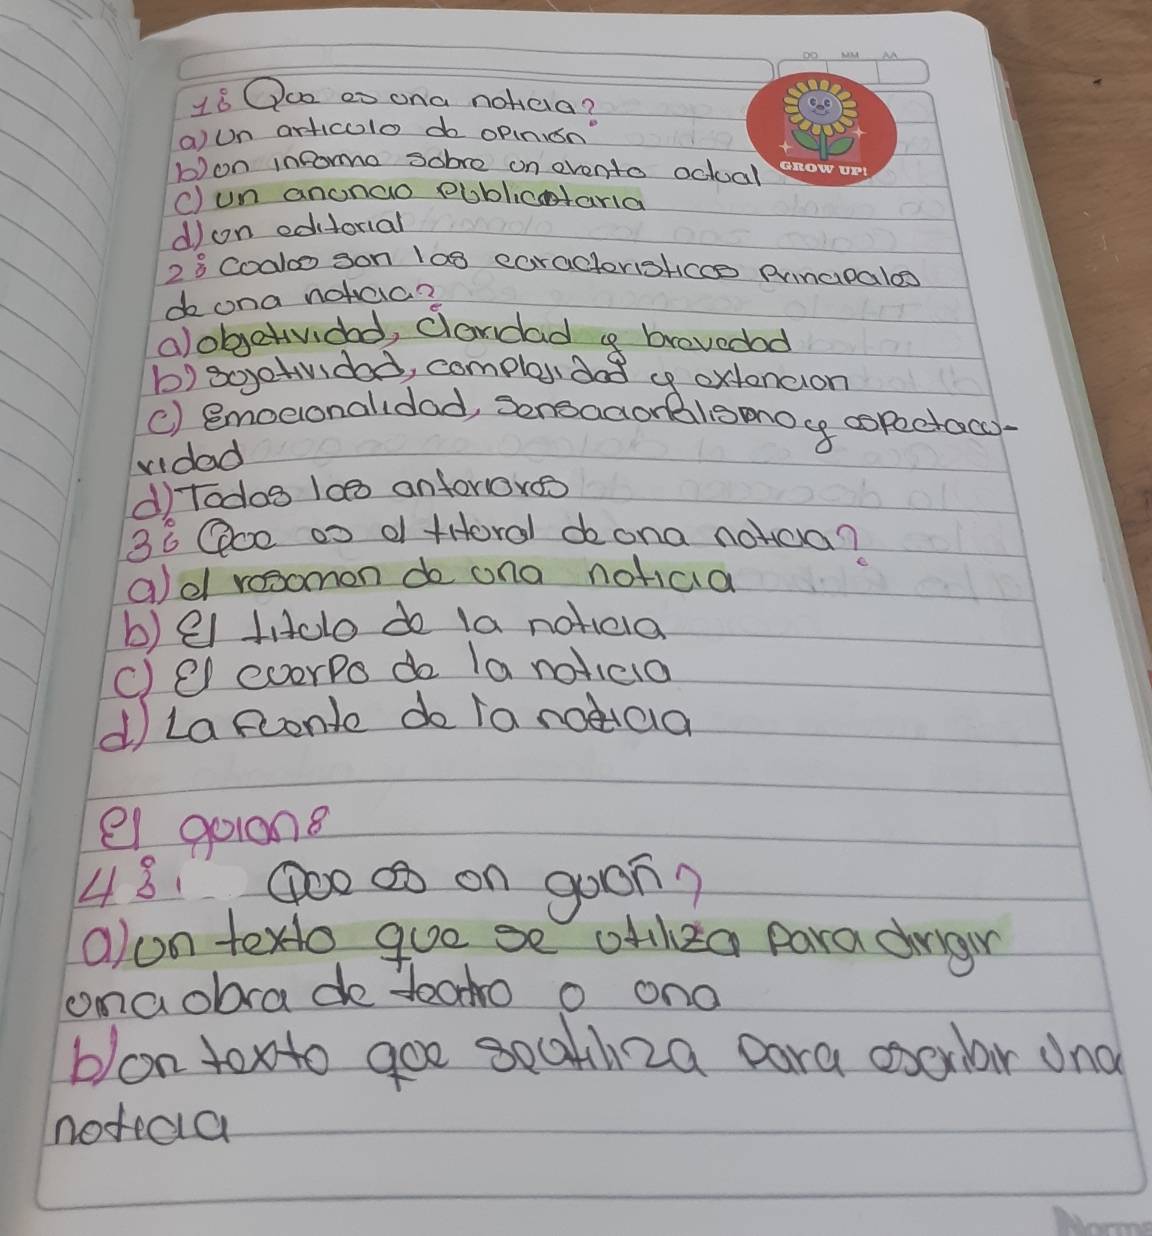 DD MM AA
1: Que es una noticia?
a) Un articulo de opinión
b) un informe sobre un evento actual
GROW UP!
c) un anuncio publicitaria
d) un editorial
2: Cuales son las caracteristicas principales
de una noticia?
a) objetividad, claridad y brevedad
b) sojetividad, complejidad y extencion
c) Emocionalidad, sensacionalismo y espectacu-
ridad
d) Todas las anteriores
3: Que es el titular de una noticia?
a) el resumen de una noticia
b) El titulo de la noticia
c) El cuerpo de la noticia
d) La fuente de la noticia
El guion:
4: Que es un guion?
a) un texto que se utiliza para dirigir
una obra de teatro o una
b) un texto que se utiliza para escribir una
noticia
Norma